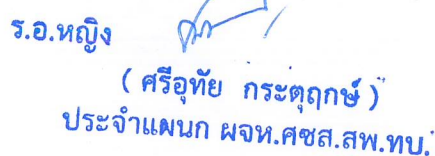 ร.อ.หญิง
( ศรีอุทัย กระตุฤกษ์ )
ประจำแผนก ผจห.ศซส.สพ.ทบ.